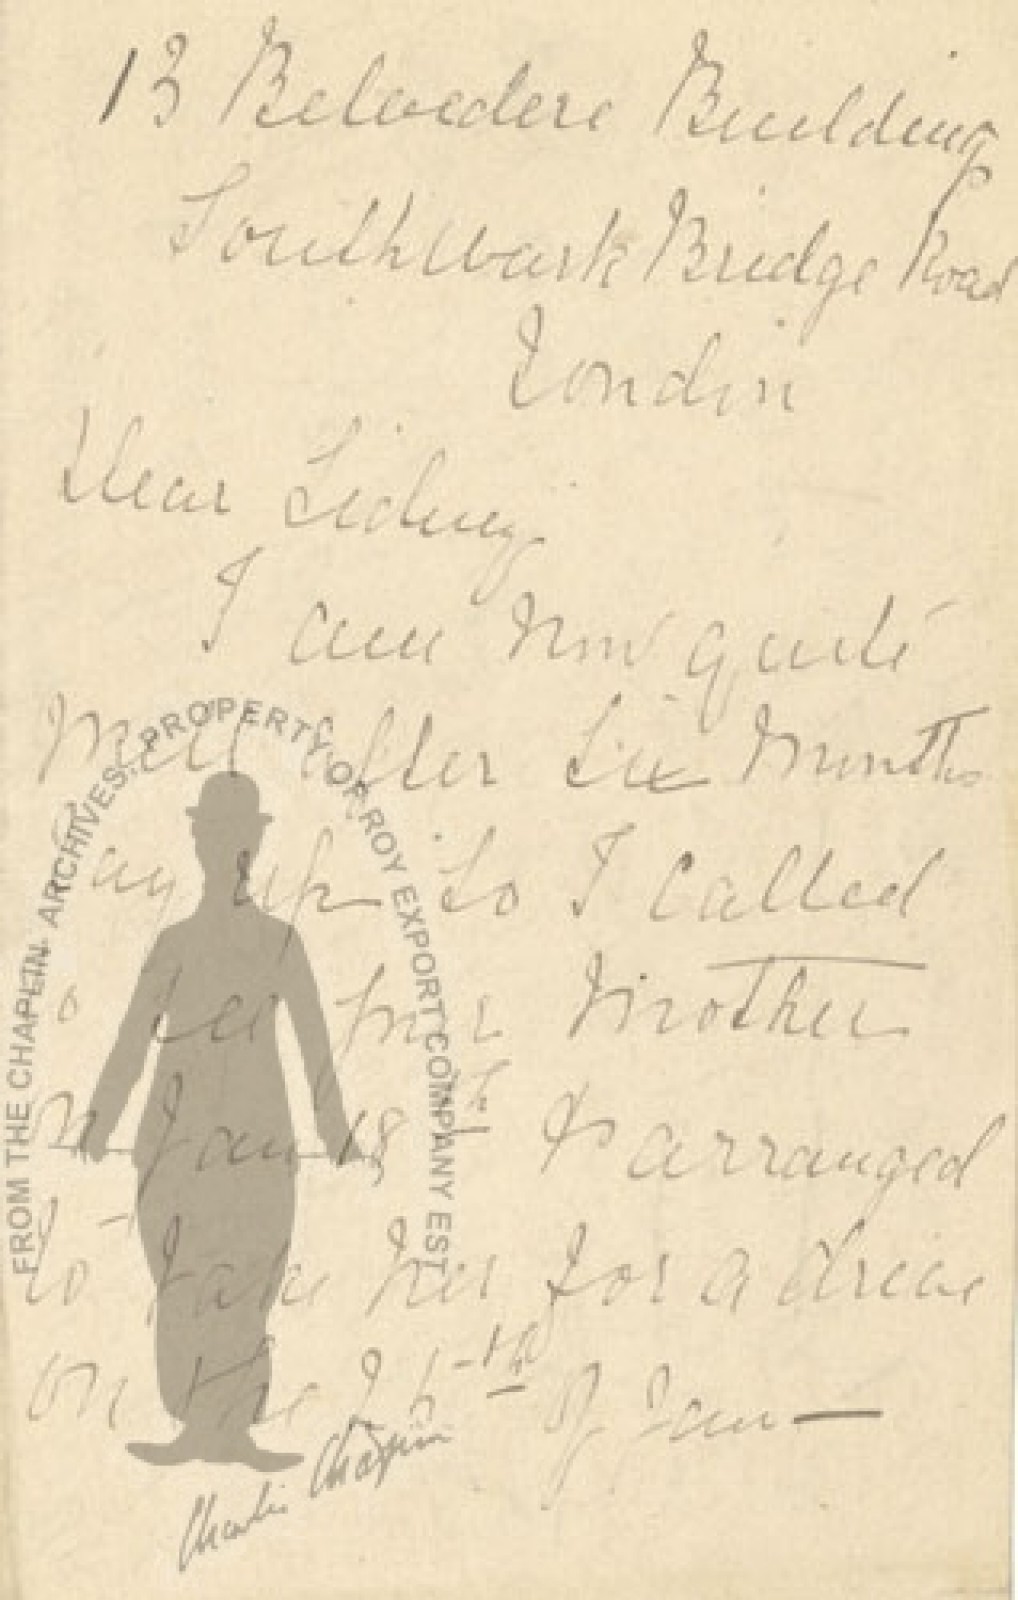 13 Belvedere Building
Southwark Bridge Road
London
Dear Sidney
I am now quite
Well after Six Months
lay up So I called
to see your Mother
on Jan 18th & arranged
to take her for a drive
on the 25th of Jan —
FROM THE CHAPLIN ARCHIVES. PROPERTY OF ROY EXPORT COMPANY EST.
Charlie Chaplin